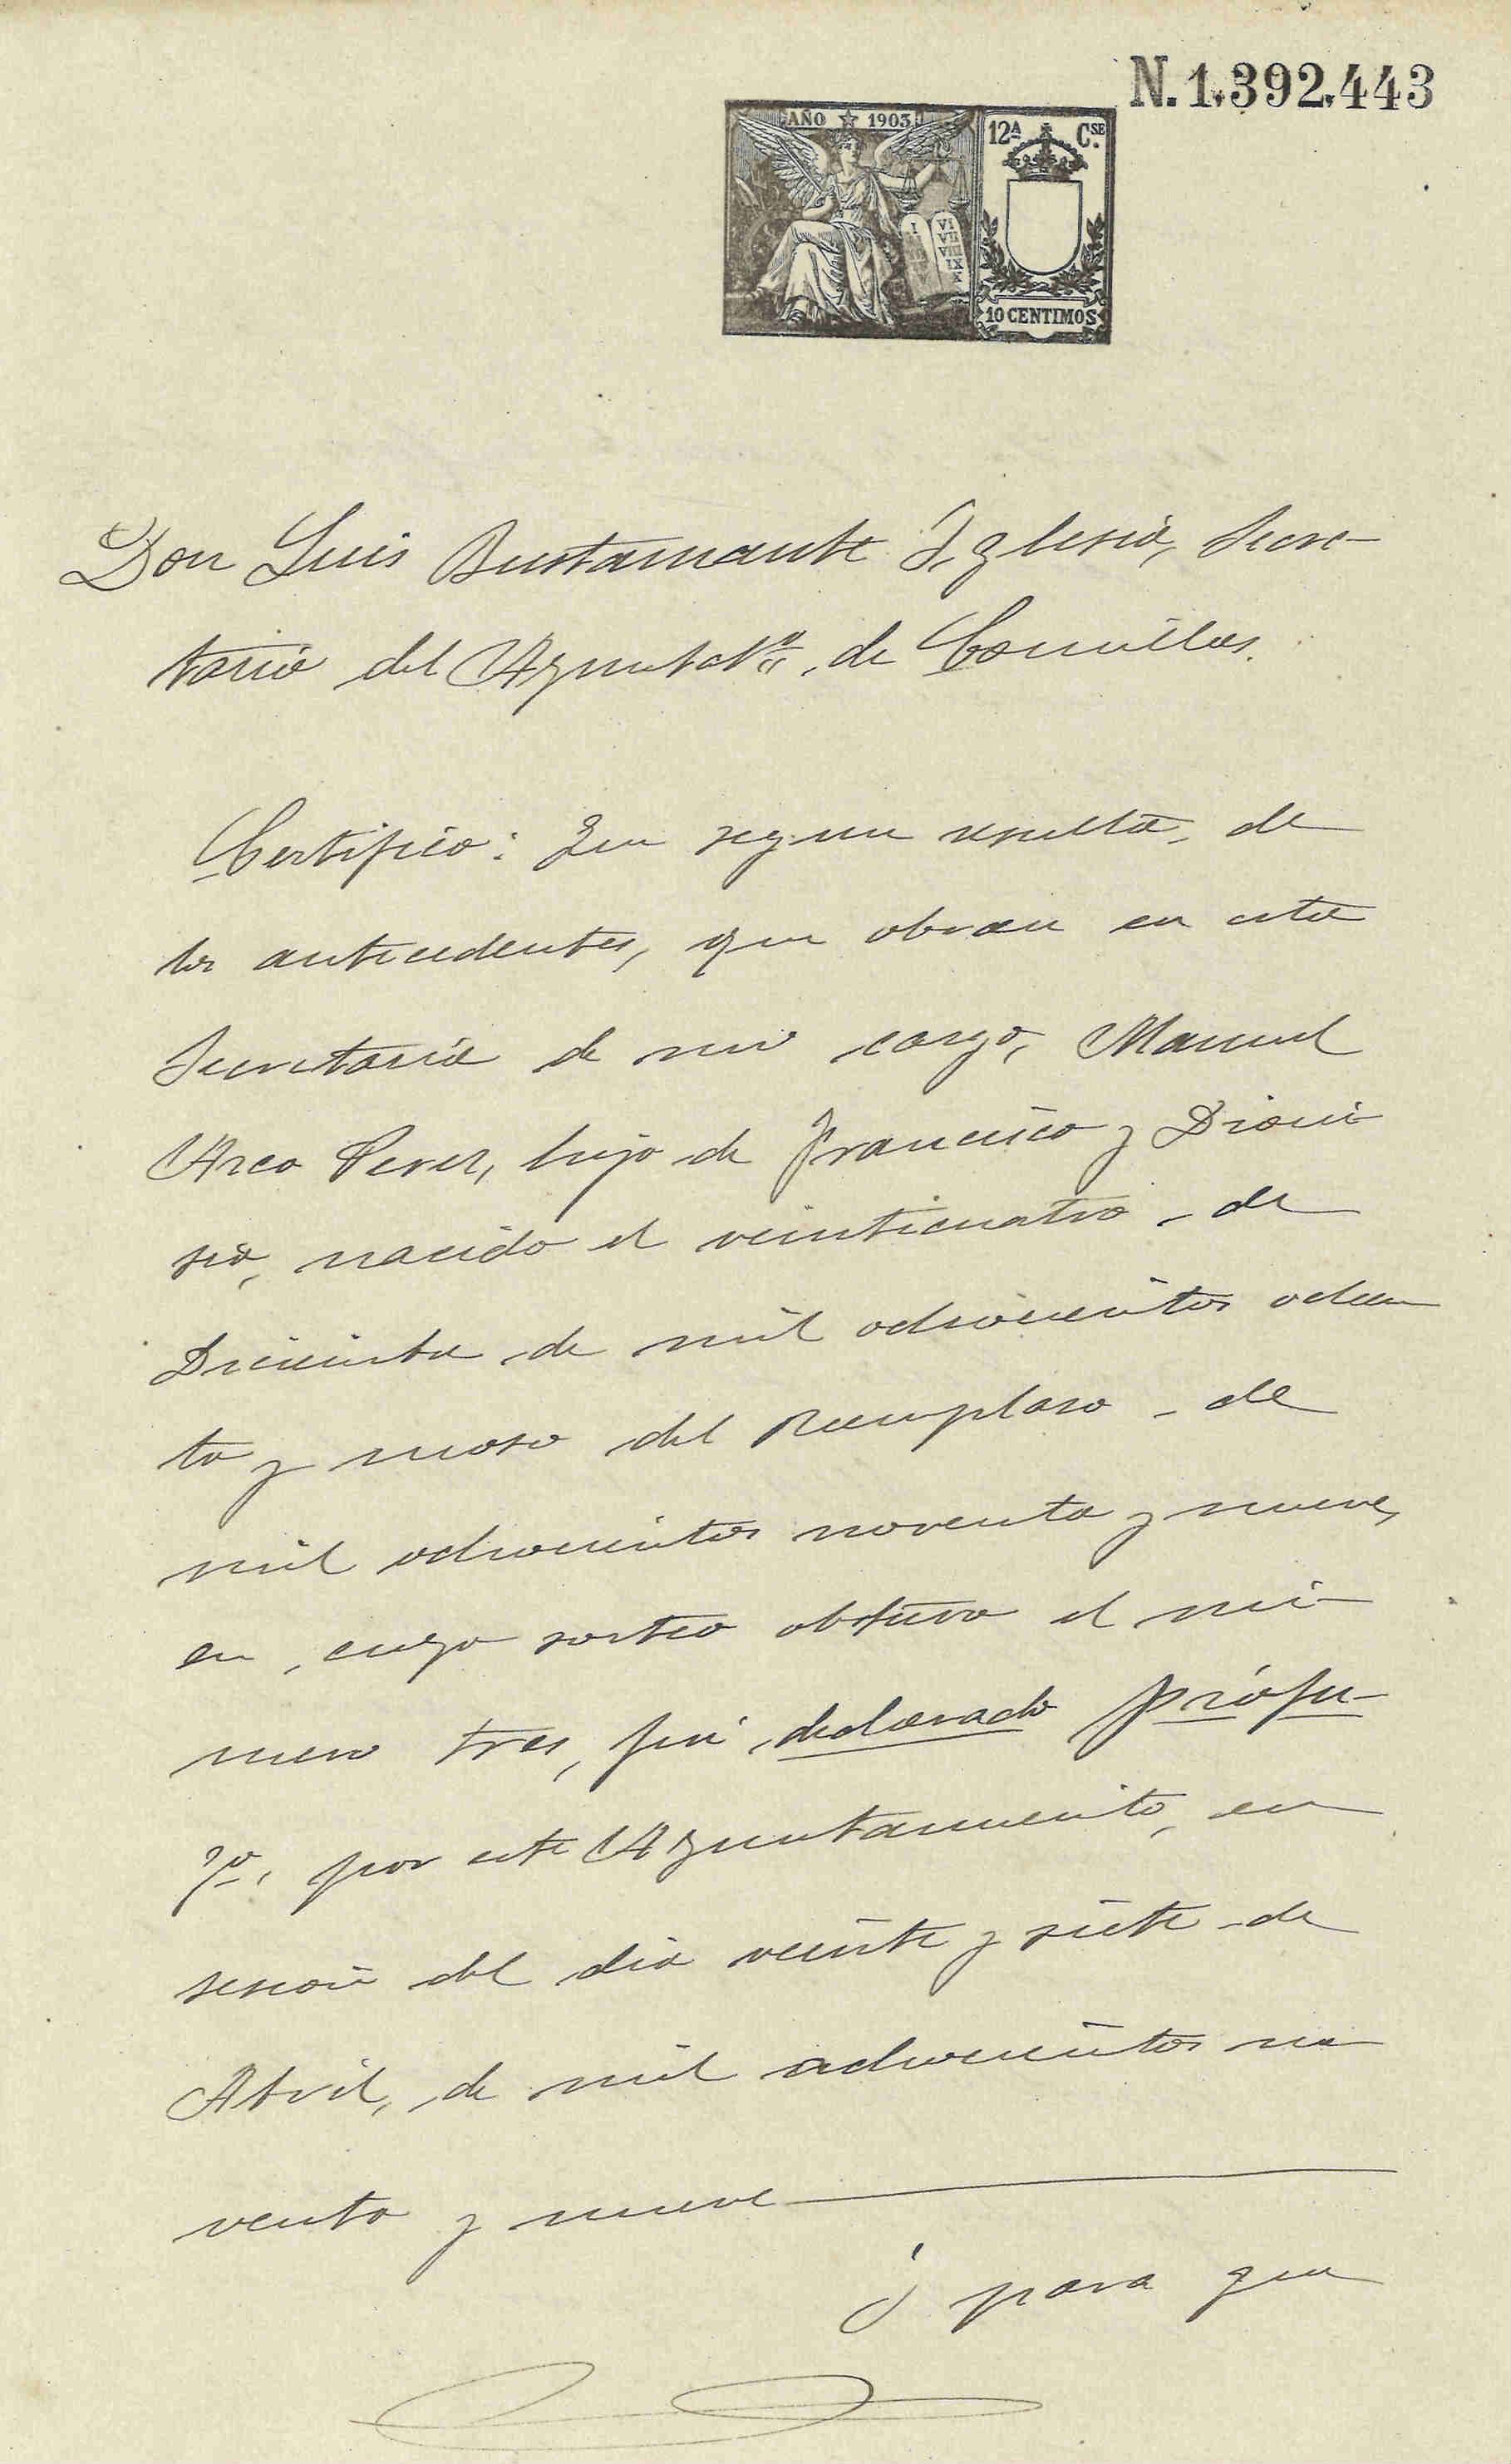 N. 1.392.443
AÑO 1903
12ª Cse.
I VI
VII
VIII
IX
X
10 CENTIMOS
Don Luis Bustamante Iglesia, Secre-
tario del Ayuntoto. de Comillas.
Certifico: Que segun resulta de
los antecedentes, que obran en esta
Secretaria de mi cargo, Manuel
Arco Perez, hijo de Francisco y Dioni-
sia, nacido el veinticuatro de
Diciembre de mil ochocientos ochen
ta y moso del Reemplaso de
mil ochocientos noventa y nueve,
en cuyo sorteo obtuvo el nú-
mero tres, fué declarado prófu-
go, por este Ayuntamiento, en
sesion del dia veinte y siete de
Abril, de mil ochocientos no
venta y nueve
Y para que